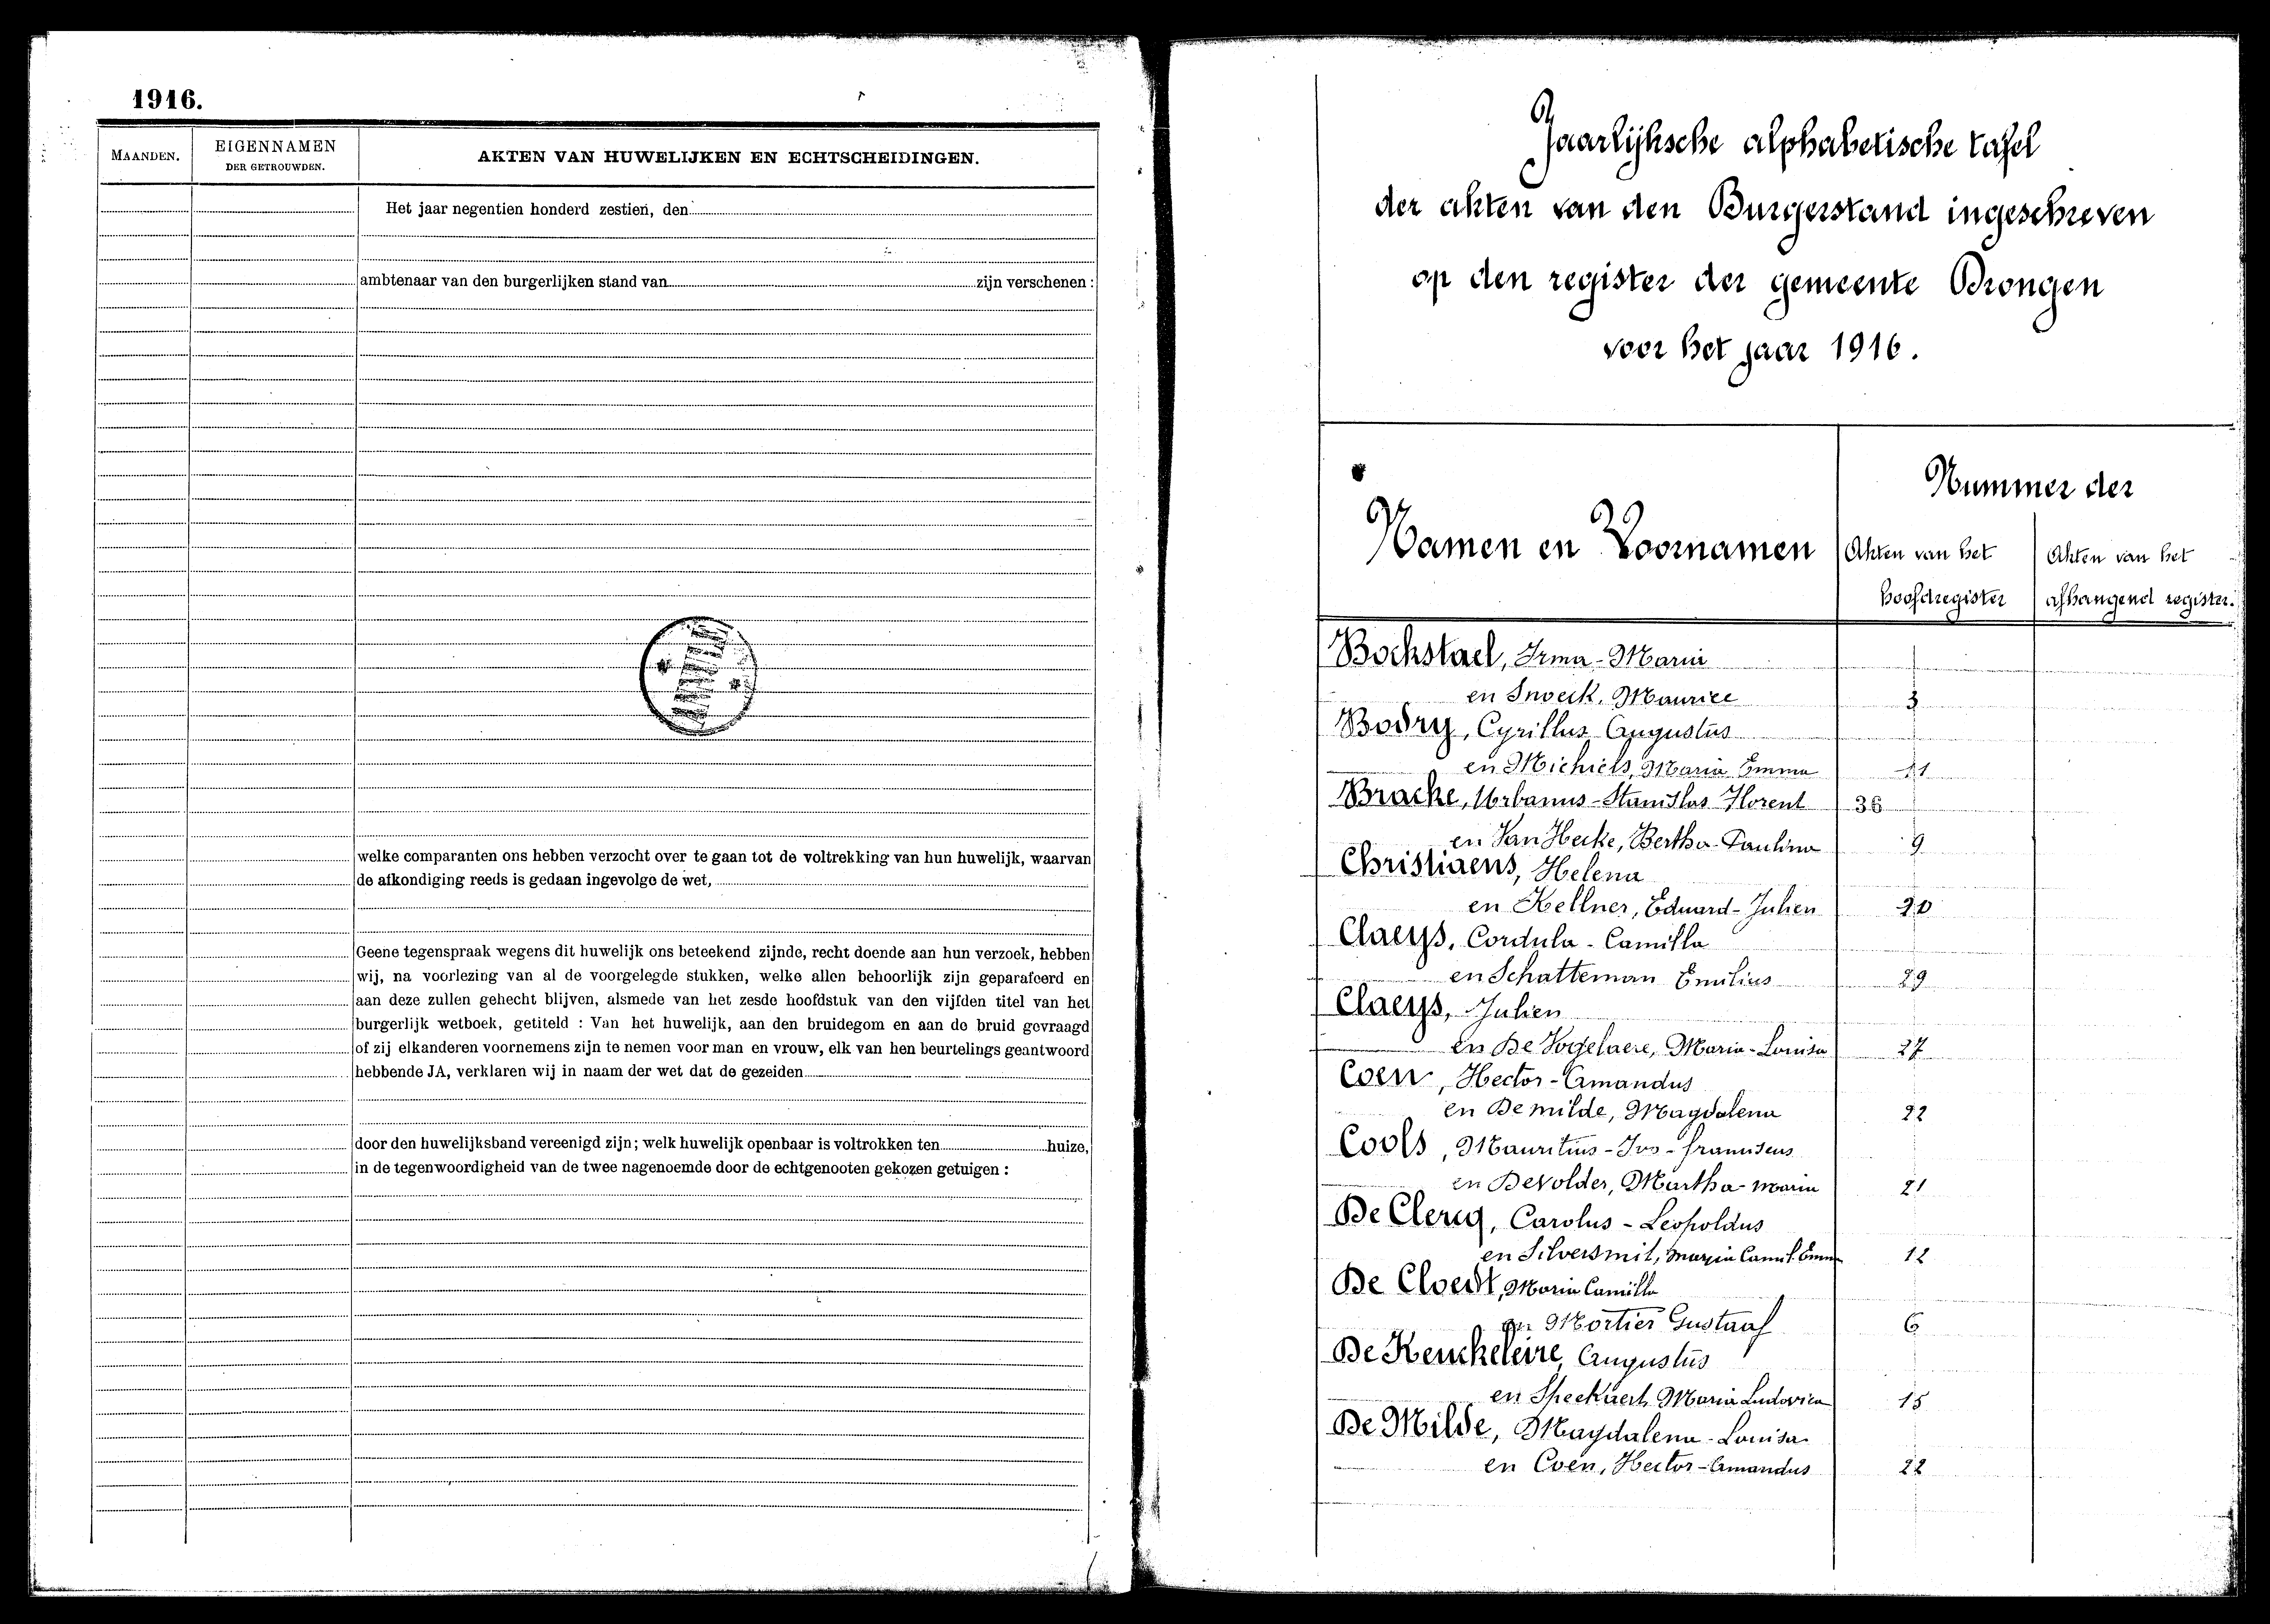 1916.
MAANDEN.
EIGENNAMEN
DER GETROUWDEN.
AKTEN VAN HUWELIJKEN EN ECHTSCHEIDINGEN.
Het jaar negentien honderd zestien, den
ambtenaar van den burgerlijken stand van zijn verschenen :
welke comparanten ons hebben verzocht over te gaan tot de voltrekking van hun huwelijk, waarvan
de afkondiging reeds is gedaan ingevolge de wet,
Geene tegenspraak wegens dit huwelijk ons beteekend zijnde, recht doende aan hun verzoek, hebben
wij, na voorlezing van al de voorgelegde stukken, welke allen behoorlijk zijn geparafeerd en
aan deze zullen gehecht blijven, alsmede van het zesde hoofdstuk van den vijfden titel van het
burgerlijk wetboek, getiteld : Van het huwelijk, aan den bruidegom en aan de bruid gevraagd
of zij elkanderen voornemens zijn te nemen voor man en vrouw, elk van hen beurtelings geantwoord
hebbende JA, verklaren wij in naam der wet dat de gezeiden
door den huwelijksband vereenigd zijn; welk huwelijk openbaar is voltrokken ten huize,
in de tegenwoordigheid van de twee nagenoemde door de echtgenooten gekozen getuigen :
Jaarlijksche alphabetische tafel
der akten van den Burgerstand ingeschreven
op den register der gemeente Drongen
voor het jaar 1916.
Namen en Voornamen
Nummer der
Akten van het
hoofdregister
Akten van het
afhangend register.
Bockstael, Irma - Maria
en Snoeck, Maurice 3
Bodry, Cyrillus Augustus
en Michiels, Maria Emma 11
Bracke, Urbanus - Stanislas Florent 36
en Van Hecke, Bertha - Paulina 9
Christiaens, Helena
en Kellner, Eduard - Julien 20
Claeys, Cordula - Camilla
en Schatteman Emilius 29
Claeys, Julien
en De Vogelaere, Maria - Louisa 27
Coen, Hector - Amandus
en De milde, Magdalena 22
Cools, Mauritius - Ivo - franciscus
en Devolder, Martha - Maria 21
De Clercq, Carolus - Leopoldus
en Silversmit, Maria Camil. Emm 12
De Cloedt, Maria Camilla
en Mortier Gustaaf 6
De Keuckeleire, Augustus
en Speekaert, Maria Ludovica 15
De Milde, Magdalena - Louisa
en Coen, Hector - Amandus 22